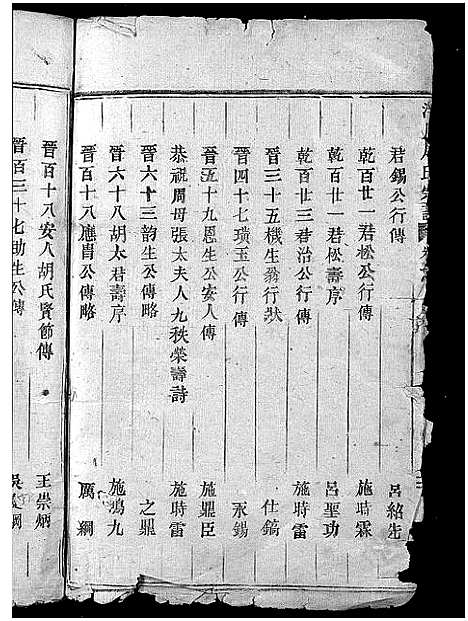 君錫公行傳 呂紹先
乾百廿一君松公行傳 施時霖
乾百廿一君松壽序 呂聖功
乾百廿三君治公行傳 施時雷
晉三十五機生翁行狀 仕鎬
晉四十七璜玉公行傳 永錫
晉五十九恩生公安人傳 施鼎臣
恭祝周母張太夫人九秩榮壽詩 施時雷
晉六十三韵生公傳略 之鼎
晉六十八胡太君壽序 施鴻九
晉百十八應胄公傳略 厲綱
晉百十八安人胡氏賢節傳 王崇炳
晉百三十七助生公傳 吳綱